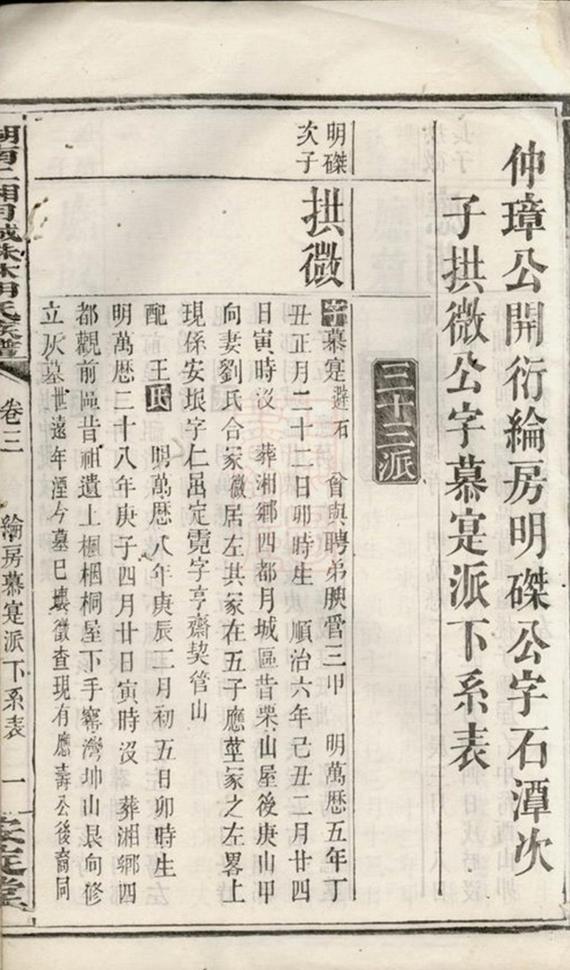 仲璋公開衍綸房明磔公字石潭次
子拱微公字慕寔派下系表
三十三派
明磔
次子
拱微
字慕寔避石 曾與聘弟腴當三甲 明萬歷五年丁
丑正月二十二日卯時生 順治六年己丑二月廿四
日寅時沒 葬湘鄉四都月城區昔栗山屋後庚山甲
向妻劉氏合冢微居左其冢在五子應莖冢之左畧上
現係安垠字仁邑定霓字亨齋契管山
配 王氏 明萬歷八年庚辰二月初五日卯時生
明萬歷二十八年庚子四月廿日寅時沒 葬湘鄉四
都觀前區昔祖遺上楓梱桐屋下手窰灣坤山艮向修
立灰墓世遠年湮今墓已壞微查現有應壽公後裔同
卷三
綸房慕寔派下系表
一